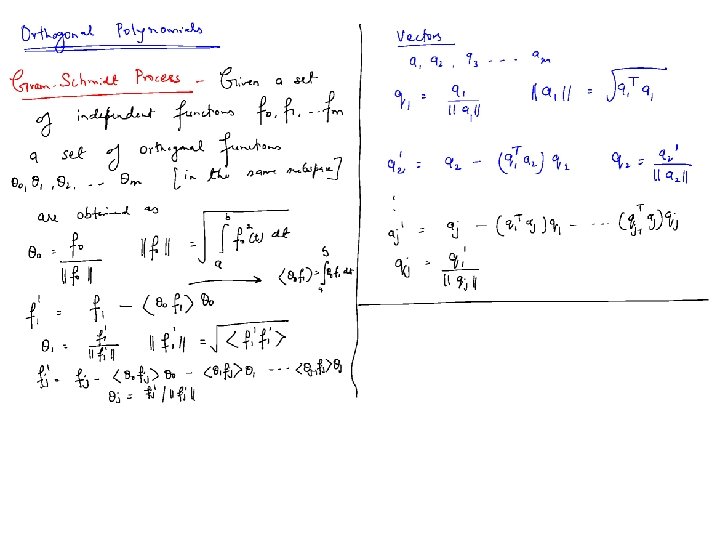 Orthogonal Polynomials
Gram-Schmidt Process - Given a set
of independent functions f₀, f₁, ... fₘ
a set of orthogonal functions
θ₀, θ₁, θ₂, ... θₘ [in the same subspace]
are obtained as
θ₀ = f₀ / ||f₀||   ||f₀|| = √(∫ₐᵇ f₀²(t) dt)
⟶ ⟨θ₀f₁⟩ = ∫ₐᵇ θ₀f₁ dt
f₁' = f₁ - ⟨θ₀ f₁⟩ θ₀
θ₁ = f₁' / ||f₁'||   ||f₁'|| = √⟨f₁' f₁'⟩
fⱼ' = fⱼ - ⟨θ₀fⱼ⟩θ₀ - ⟨θ₁fⱼ⟩θ₁ ... ⟨θⱼ₋₁fⱼ⟩θⱼ
θⱼ = fⱼ' / ||fⱼ'||
Vectors
a₁ a₂, a₃ .... aₘ
q₁ = a₁ / ||a₁||   ||a₁|| = √(a₁ᵀa₁)
a₂' = a₂ - (q₁ᵀa₂) q₂   q₂ = a₂' / ||a₂||
⋮
aⱼ' = aⱼ - (q₁ᵀaⱼ)q₁ - ... (qⱼ₋₁ᵀaⱼ)qⱼ
qⱼ = aⱼ' / ||aⱼ||